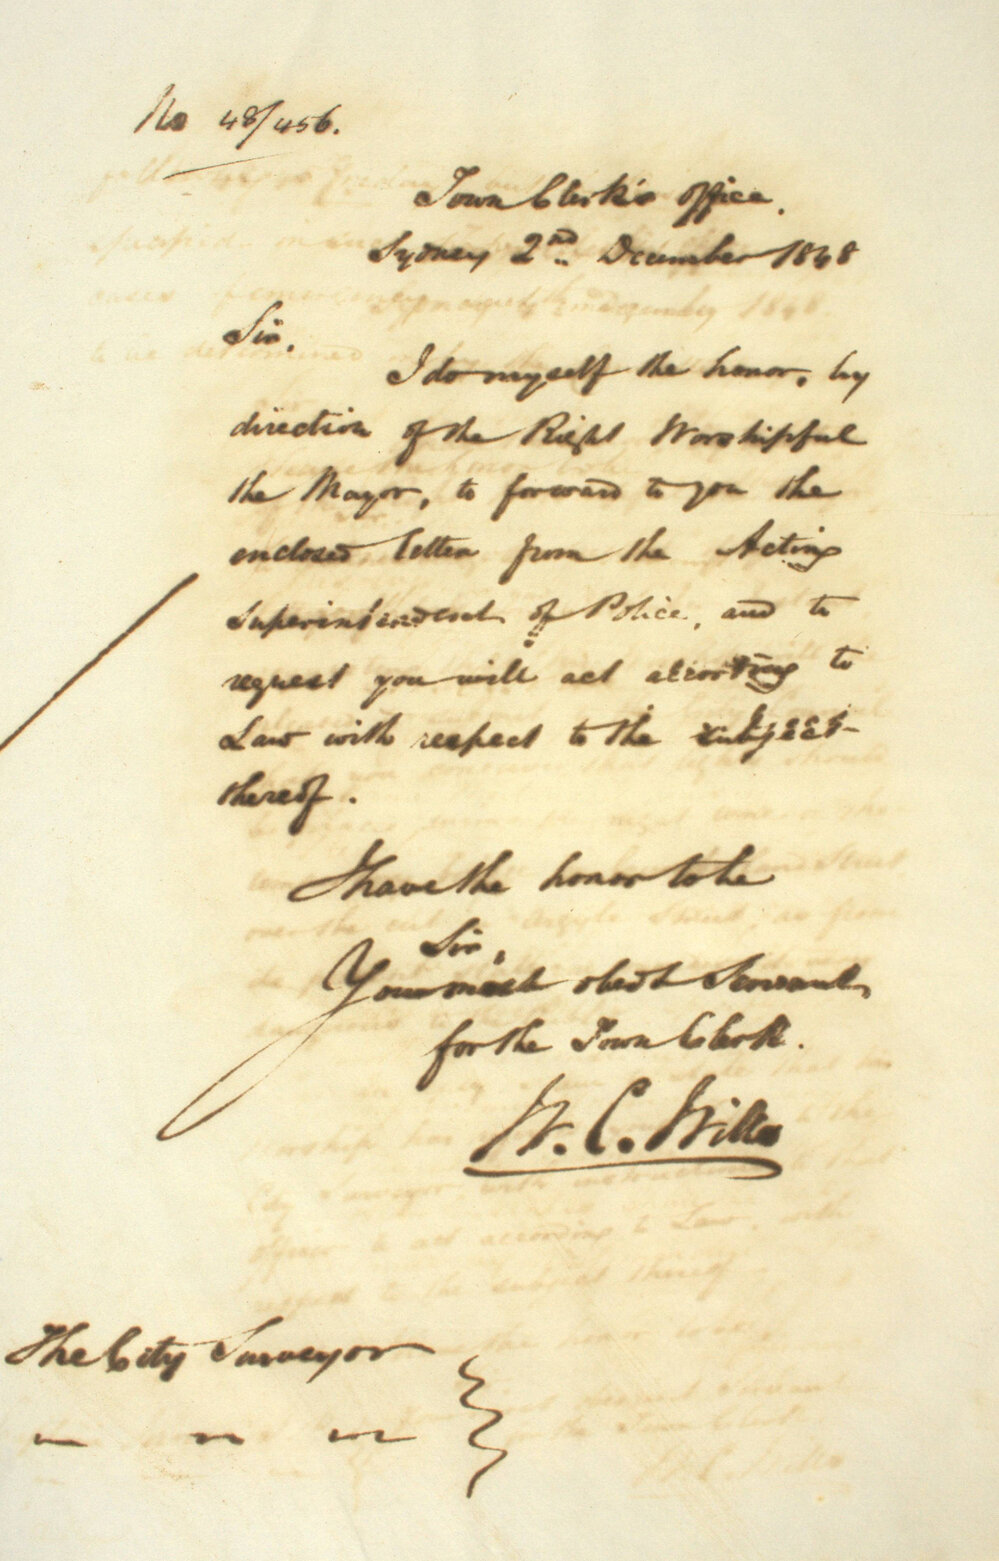 No 48/456.
Town Clerk's Office.
Sydney 2nd December 1848
Sir,
I do myself the honor, by
direction of the Right Worshipful
the Mayor, to forward to you the
enclosed letter from the Acting
Superintendent of Police, and to
request you will act according to
Law with respect to the subject
thereof.
I have the honor to be
Sir,
Your most obedt Servant,
for the Town Clerk.
W. C. Wills
The City Surveyor